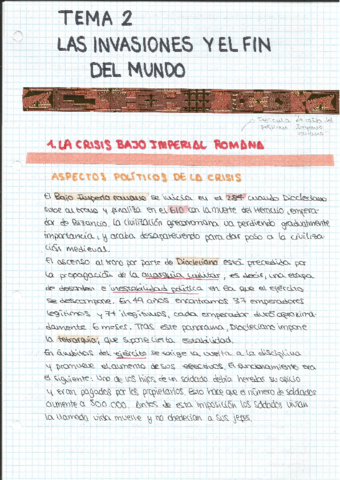 TEMA 2
LAS INVASIONES Y EL FIN
DEL MUNDO
1. LA CRISIS BAJO IMPERIAL ROMANA
ASPECTOS POLÍTICOS DE LA CRISIS
El Bajo Imperio romano se inicia en el 284 cuando Diocleciano
sube al trono y finaliza en el 610 con la muerte del Heraclio, empera-
dor de Bizancio. La civilización grecorromana va perdiendo gradualmente
importancia, y acaba desapareciendo para dar paso a la civiliza-
ción medieval.
El ascenso al trono por parte de Diocleciano está precedida por
la propagación de la anarquía militar, es decir, una etapa
de desorden e inestabilidad política en la que el ejército
se descompone. En 49 años encontramos 37 emperadores
legítimos y 74 ilegítimos, cada emperador duró aproxima-
damente 6 meses. Tras este panorama, Diocleciano impone
la tetrarquía, que supone cierta estabilidad.
En ámbitos del ejército se exige la vuelta a la disciplina
y promueve el aumento de sus efectivos. El funcionamiento era
el siguiente: Uno de los hijos de un soldado debía heredar su oficio
y eran pagados por los propietarios. Esto hace que el número de soldados
aumente a 500.000. Antes de esta imposición los soldados vivían
la llamada vida muelle y no obedecían a sus jefes.